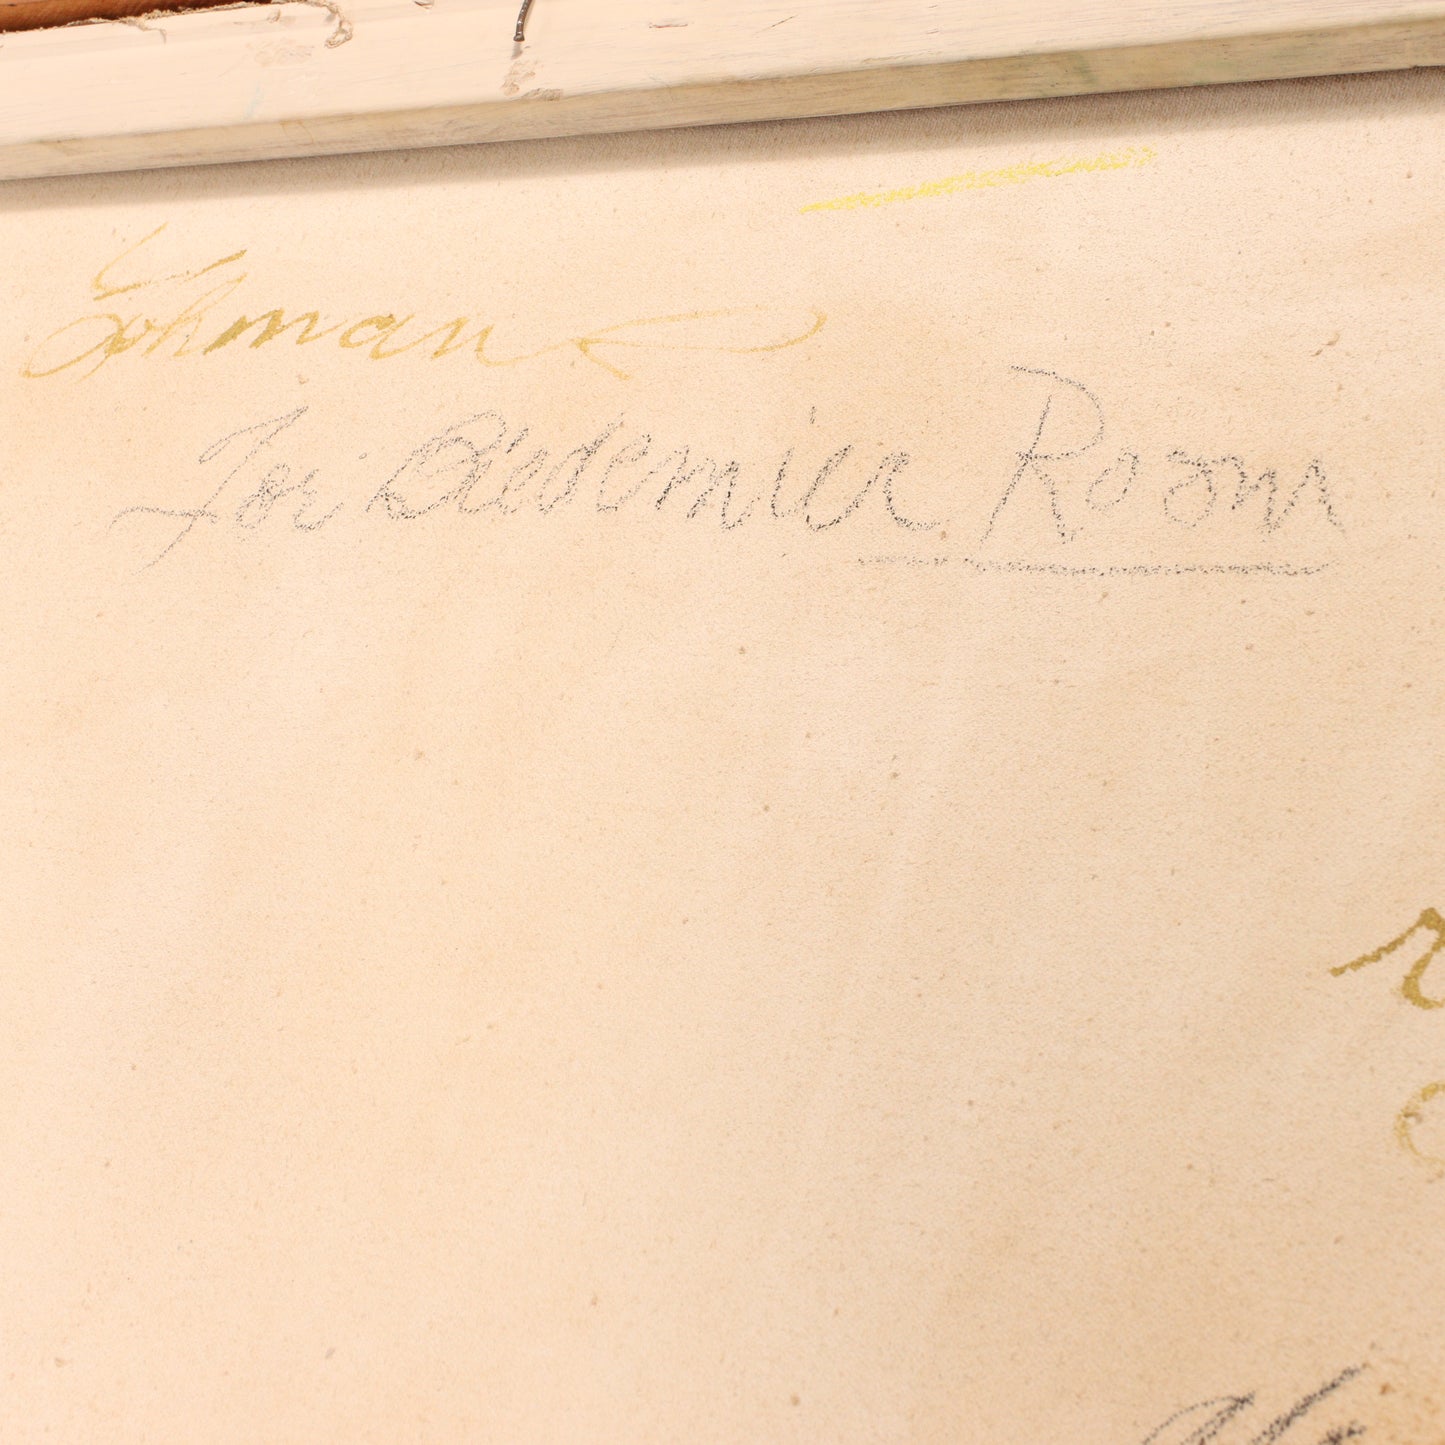 Lohman
For Biedemier Room